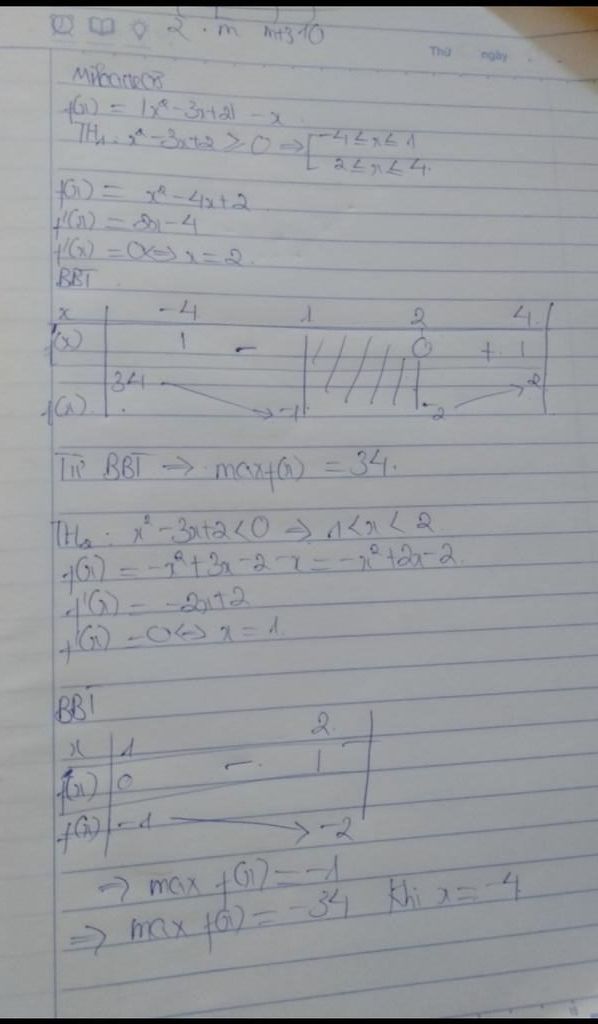 2 . m
Thứ ngày
f(x) = |x² - 3x + 2| - x
TH₁: x² - 3x + 2 ≥ 0 => [ -4 ≤ x ≤ 1
2 ≤ x ≤ 4
f(x) = x² - 4x + 2
f'(x) = 2x - 4
f'(x) = 0 <=> x = 2
BBT
x -4 1 2 4
f'(x) | - 0 + |
f(x) 34 -1 -2 2
Từ BBT → max f(x) = 34.
TH₂: x² - 3x + 2 < 0 => 1 < x < 2
f(x) = -x² + 3x - 2 - x = -x² + 2x - 2
f'(x) = -2x + 2
f'(x) = 0 <=> x = 1.
BBT
x 1 2
f'(x) 0 - |
f(x) -1 -2
=> max f(x) = -1
=> max f(x) = -34 khi x = -4